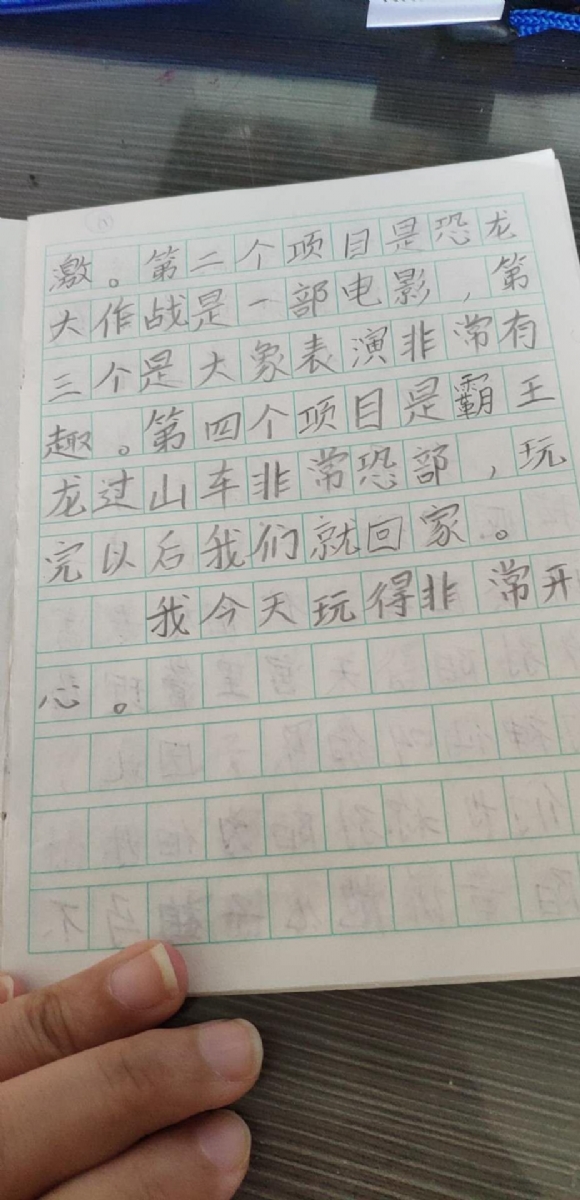 激。第二个项目是恐龙
大作战是一部电影，第
三个是大象表演非常有
趣。第四个项目是霸王
龙过山车非常恐部，玩
完以后我们就回家。
我今天玩得非常开
心。